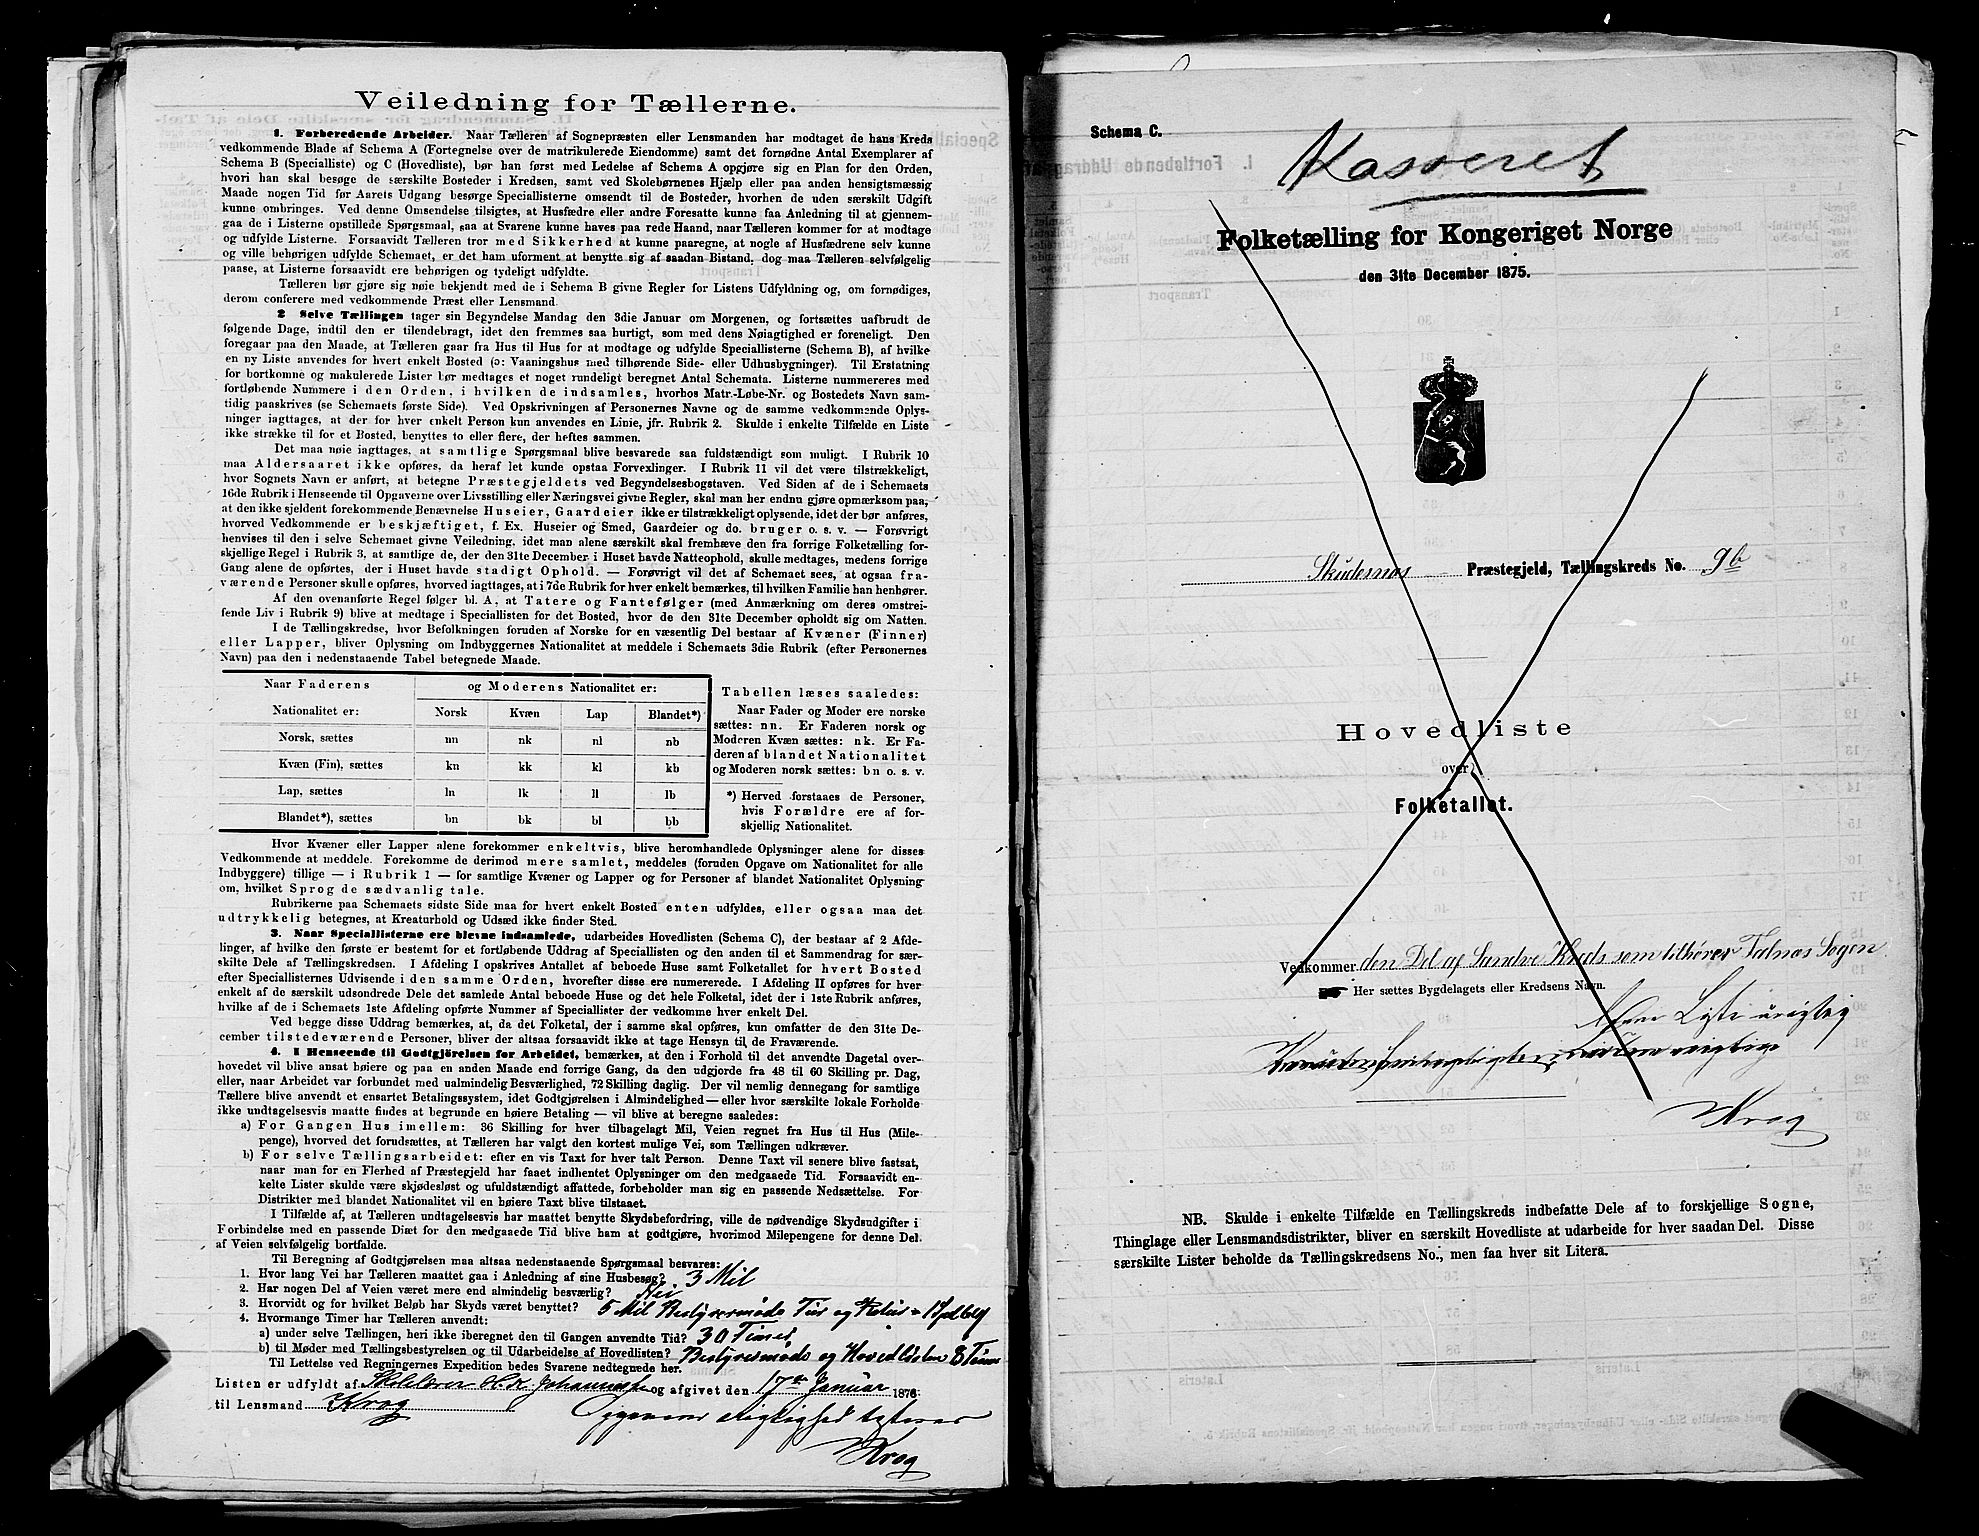 Veiledning for Tællerne.
1. Forberedende Arbeider. Naar Tælleren af Sognepræsten eller Lensmanden har modtaget de hans Kreds
vedkommende Blade af Schema A (Fortegnelse over de matrikulerede Eiendomme) samt det fornødne Antal Exemplarer af
Schema B (Specialliste) og C (Hovedliste), bør han først med Ledelse af Schema A opgjøre sig en Plan for den Orden,
hvori han skal besøge de særskilte Bosteder i Kredsen, samt ved Skolebørnenes Hjælp eller paa anden hensigtsmæssig
Maade nogen Tid før Aarets Udgang besørge Speciallisterne omsendt til de Bosteder, hvorhen de uden særskilt Udgift
kunne ombringes. Ved denne Omsendelse tilsigtes, at Husfædre eller andre Foresatte kunne faa Anledning til at gjennem-
gaa de i Listerne opstillede Spørgsmaal, saa at Svarene kunne haves paa rede Haand, naar Tælleren kommer for at modtage
og udfylde Listerne. Forsaavidt Tælleren tror med Sikkerhed at kunne paaregne, at nogle af Husfædrene selv kunne
og ville behørigen udfylde Schemaet, er det ham uforment at benytte sig af saadan Bistand, dog maa Tælleren selvfølgelig
paase, at Listerne forsaavidt ere behørigen og tydeligt udfyldte.
Tælleren bør gjøre sig nøie bekjendt med de i Schema B givne Regler for Listens Udfyldning og, om fornødiges,
derom conferere med vedkommende Præst eller Lensmand.
2 Selve Tællingen tager sin Begyndelse Mandag den 3die Januar om Morgenen, og fortsættes uafbrudt de
følgende Dage, indtil den er tilendebragt, idet den fremmes saa hurtigt, som med dens Nøiagtighed er foreneligt. Den
foregaar paa den Maade, at Tælleren gaar fra Hus til Hus for at modtage og udfylde Speciallisterne (Schema B), af hvilke
en ny Liste anvendes for hvert enkelt Bosted (ɔ: Vaaningshus med tilhørende Side- eller Udhusbygninger). Til Erstatning
for bortkomne og makulerede Lister bør medtages et noget rundeligt beregnet Antal Schemata. Listerne nummereres med
fortløbende Nummere i den Orden, i hvilken de indsamles, hvorhos Matr.-Løbe-Nr. og Bostedets Navn sam-
tidig paaskrives (se Schemaets første Side). Ved Opskrivningen af Personernes Navne og de samme vedkommende Oplys-
ninger iagttages, at der for hver enkelt Person kun anvendes en Linie, jfr. Rubrik 2. Skulde i enkelte Tilfælde en Liste
ikke strække til for et Bosted, benyttes to eller flere, der heftes sammen.
Det maa nøie iagttages, at samtlige Spørgsmaal blive besvarede saa fuldstændigt som muligt. I Rubrik 10
maa Aldersaaret ikke opføres, da heraf let kunde opstaa Forvexlinger. I Rubrik 11 vil det være tilstrækkeligt,
hvor Sognets Navn er anført, at betegne Præstegjeldets ved Begyndelsesbogstaven. Ved Siden af de i Schemaets
16de Rubrik i Henseende til Opgaverne over Livsstilling eller Næringsvei givne Regler, skal man her endnu gjøre opmærksom paa,
at den ikke sjeldent forekommende Benævnelse Huseier, Gaardeier ikke er tilstrækkeligt oplysende, idet der bør anføres,
hvorved Vedkommende er beskjæftiget, f. Ex. Huseier og Smed, Gaardeier og do. bruger o. s. v. — Forøvrigt
henvises til den i selve Schemaet givne Veiledning, idet man alene særskilt skal fremhæve den fra forrige Folketælling for-
skjellige Regel i Rubrik 3, at samtlige de, der den 31te December i Huset havde Natteophold, skulle medtages, medens forrige
Gang alene de opførtes, der i Huset havde stadigt Ophold. — Forøvrigt vil det af Schemaet sees, at ogsaa fra-
værende Personer skulle opføres, hvorved iagttages, at i 7de Rubrik for hver enkelt bemærkes, til hvilken Familie han henhører.
Af den ovenanførte Regel følger bl. A, at Tatere og Fantefølger (med Anmærkning om deres omstrei-
fende Liv i Rubrik 9) blive at medtage i Speciallisten for det Bosted, hvor de den 31te December opholdt sig om Natten.
I de Tællingskredse, hvor Befolkningen foruden af Norske for en væsentlig Del bestaar af Kvæner (Finner)
eller Lapper, bliver Oplysning om Indbyggernes Nationalitet at meddele i Schemaets 3die Rubrik (efter Personernes
Navn) paa den i nedenstaaende Tabel betegnede Maade.
Naar Faderens og Moderens Nationalitet er:
Nationalitet er: Norsk Kvæn Lap Blandet*)
Norsk, sættes nn nk nl nb
Kvæn (Fin), sættes kn kk kl kb
Lap, sættes ln lk ll lb
Blandet*), sættes bn bk bl bb
Tabellen læses saaledes:
Naar Fader og Moder ere norske
sættes: nn. Er Faderen norsk og
Moderen Kvæn sættes: nk. Er Fa-
deren af blandet Nationalitet
og Moderen norsk sættes: bn o. s. v.
*) Herved forstaaes de Personer,
hvis Forældre ere af for-
skjellig Nationalitet.
Hvor Kvæner eller Lapper alene forekommer enkeltvis, blive heromhandlede Oplysninger alene for disses
Vedkommende at meddele. Forekomme de derimod mere samlet, meddeles (foruden Opgave om Nationalitet for alle
Indbyggere) tillige — i Rubrik 1 — for samtlige Kvæner og Lapper og for Personer af blandet Nationalitet Oplysning
om, hvilket Sprog de sædvanlig tale.
Rubrikerne paa Schemaets sidste Side maa for hvert enkelt Bosted enten udfyldes, eller ogsaa maa det
udtrykkelig betegnes, at Kreaturhold og Udsæd ikke finder Sted.
3. Naar Speciallisterne ere blevne indsamlede, udarbeides Hovedlisten (Schema C), der bestaar af 2 Afde-
linger, af hvilke den første er bestemt for et fortløbende Uddrag af Speciallisten og den anden til et Sammendrag for sær-
skilte Dele af Tællingskredsen. I Afdeling I opskrives Antallet af beboede Huse samt Folketallet for hvert Bosted
efter Speciallisternes Udvisende i den samme Orden, hvorefter disse ere numererede. I Afdeling II opføres for hver
enkelt af de særskilt udsondrede Dele det samlede Antal beboede Huse og det hele Folketal, idet der i 1ste Rubrik anføres,
hvilke af de i Schemaets 1ste Afdeling opførte Nummer af Speciallister der vedkomme hver enkelt Del.
Ved begge disse Uddrag bemærkes, at, da det Folketal, der i samme skal opføres, kun omfatter de den 31te De-
cember tilstedeværende Personer, bliver der altsaa forsaavidt ikke at tage Hensyn til de Fraværende.
4. I Henseende til Godtgjörelsen for Arbeidet, bemærkes, at den i Forhold til det anvendte Dagetal over-
hovedet vil blive ansat høiere og paa en anden Maade end forrige Gang, da den udgjorde fra 48 til 60 Skilling pr. Dag,
eller, naar Arbeidet var forbundet med ualmindelig Besværlighed, 72 Skilling daglig. Der vil nemlig dennegang for samtlige
Tællere blive anvendt et ensartet Betalingssystem, idet Godtgjørelsen i Almindelighed — eller hvor særskilte lokale Forholde
ikke undtagelsesvis maatte findes at begrunde en høiere Betaling — vil blive at beregne saaledes:
a) For Gangen Hus imellem: 36 Skilling for hver tilbagelagt Mil, Veien regnet fra Hus til Hus (Mile-
penge), hvorved det forudsættes, at Tælleren har valgt den kortest mulige Vei, som Tællingen udkræver.
b) For selve Tællingsarbeidet: efter en vis Taxt for hver talt Person. Denne Taxt vil senere blive fastsat,
naar man for en Flerhed af Præstegjeld har faaet indhentet Oplysninger om den medgaaede Tid. Forsaavidt en-
kelte Lister skulde være skjødesløst og ufuldstændigt affattede, forbeholder man sig en passende Nedsættelse. For
Distrikter med blandet Nationalitet vil en høiere Taxt blive tilstaaet.
I Tilfælde af, at Tælleren undtagelsesvis har maattet benytte Skydsbefordring, ville de nødvendige Skydsudgifter i
Forbindelse med en passende Diæt for den medgaaede Tid blive ham at godtgjøre, hvorimod Milepengene for denne Del
af Veien selvfølgelig bortfalde.
Til Beregning af Godtgjørelsen maa altsaa nedenstaaende Spørgsmaal besvares:
1. Hvor lang Vei har Tælleren maattet gaa i Anledning af sine Husbesøg? 3 Mil
2. Har nogen Del af Veien været mere end almindelig besværlig? Nei
3. Hvorvidt og for hvilket Beløb har Skyds været benyttet? 5 Mil Bestyrermøde Tur og Retur
4. Hvormange Timer har Tælleren anvendt:
a) under selve Tællingen, heri ikke iberegnet den til Gangen anvendte Tid? 30 Timer
b) til Møder med Tællingsbestyrelsen og til Udarbeidelse af Hovedlisten? Bestyresmøde og Hovedlisten 8 Timer
Til Lettelse ved Regningernes Expedition bedes Svarene nedtegnede her.
Listen er udfyldt af og afgivet den 17de Januar 1876
til Lensmand Krog
Krog
Schema C.
Kasseret
Folketælling for Kongeriget Norge
den 31te December 1875.
Skudesnæs Præstegjeld, Tællingskreds No. 9b
Hovedliste
over
Folketallet.
Vedkommer den Del af Sandve Kreds som tilhører Falnæs Sogn
Her sættes Bygdelagets eller Kredsens Navn.
Liste urigtig
Krog
NB. Skulde i enkelte Tilfælde en Tællingskreds indbefatte Dele af to forskjellige Sogne,
Thinglage eller Lensmandsdistrikter, bliver en særskilt Hovedliste at udarbeide for hver saadan Del. Disse
særskilte Lister beholde da Tællingskredsens No., men faa hver sit Litera.